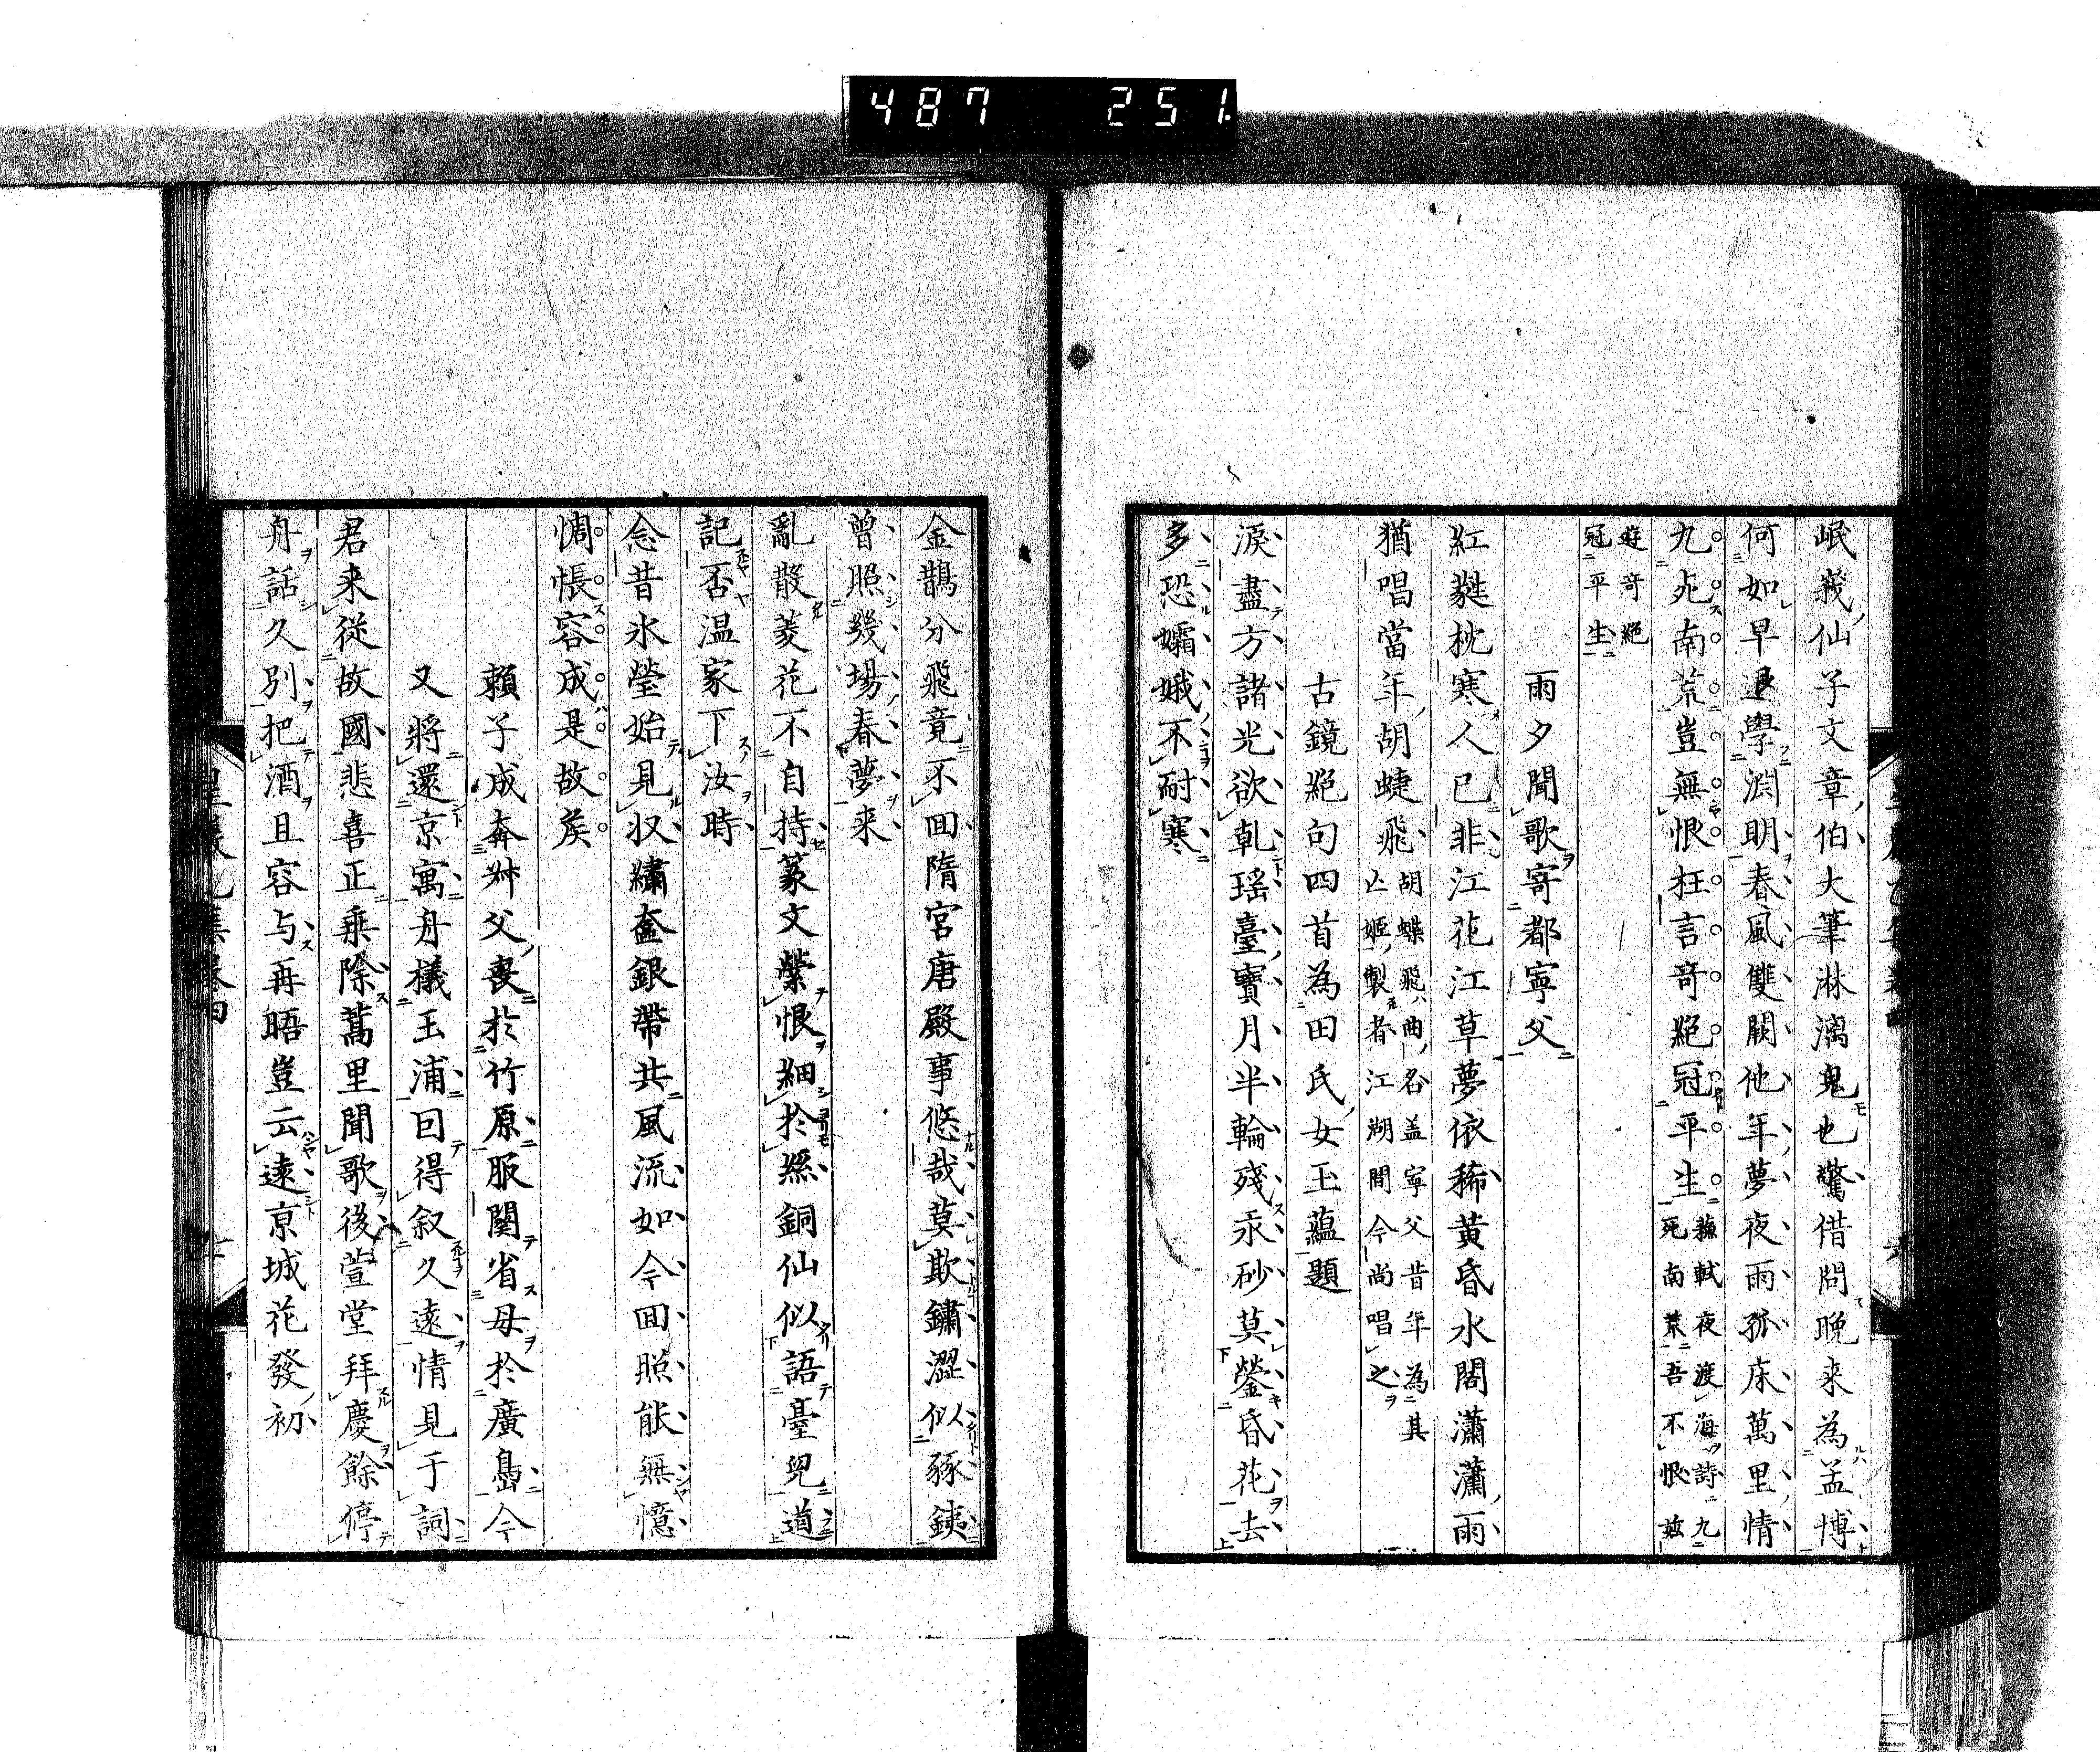 487 251.
岷峩仙子文章伯大筆淋漓鬼也驚借問晚来為孟博
何如早退學淵明春風雙闕他年夢夜雨孤床萬里情
九死南荒豈無恨枉言奇絕冠平生蘇軾夜渡海詩九
死南荒吾不恨茲
遊奇絕
冠平生
雨夕聞歌寄都寧父
紅蕤枕寒人已非江花江草夢依稀黄昏水閣瀟瀟雨
猶唱當年胡蜨飛胡蝶飛曲名盖寧父昔年為其
亡姬製者江湖間今尚唱之
古鏡絕句四首為田氏女玉蘊題
淚盡方諸光欲乹瑶臺寶月半輪殘汞砂莫鎣昏花去
多恐孀娥不耐寒
金鵲分飛竟不回隋宮唐殿事悠哉莫欺鏽澀似豩鋏
曾照幾場春夢来
亂散菱花不自持篆文縈恨細於絲銅仙似語臺兒道
記否温家下汝時
念昔氷瑩始見収繡奩銀帶共風流如今回照能無憶
惆悵容成是故矦
賴子成奔舛父喪於竹原服闋省母於廣島今
又將還京寓舟檥玉浦回得叙久遠情見于詞
君来従故國悲喜正乗除蒿里聞歌後萱堂拜慶餘停
舟話久別把酒且容与再晤豈云遠京城花發初